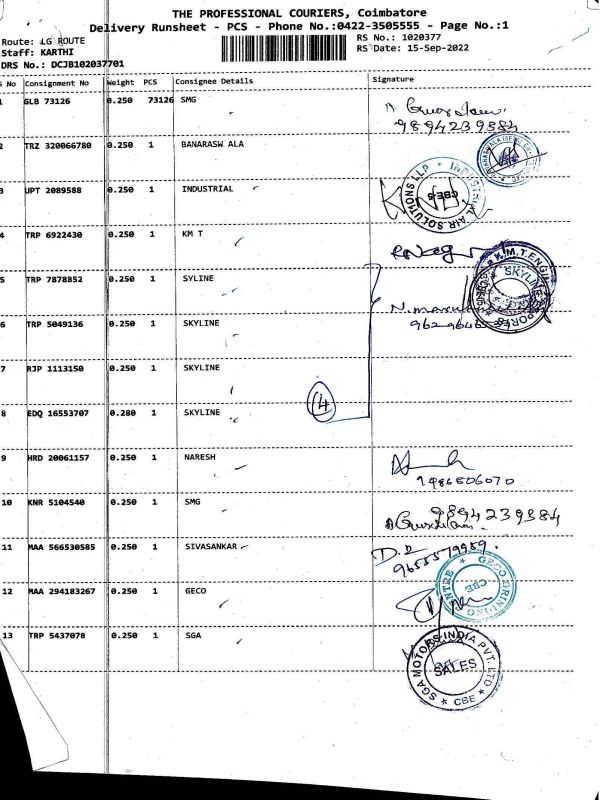 THE PROFESSIONAL COURIERS, Coimbatore
Delivery Runsheet - PCS - Phone No.:0422-3505555 - Page No.:1
Route: LG ROUTE
Staff: KARTHI
DRS No.: DCJB102037701
RS No.: 1020377
RS Date: 15-Sep-2022
S No Consignment No Weight PCS Consignee Details Signature
1 GLB 73126 0.250 73126 SMG
9894239384
2 TRZ 320066780 0.250 1 BANARASW ALA
3 UPT 2089588 0.250 1 INDUSTRIAL
INDUSTRIAL AIR SOLUTIONS LLP
CBE-6
4 TRP 6922430 0.250 1 KM T
K.M.T.ENGI
5 TRP 7878852 0.250 1 SYLINE
SKYLINE
6 TRP 5049136 0.250 1 SKYLINE
7 RJP 1113150 0.250 1 SKYLINE
8 EDQ 16553707 0.280 1 SKYLINE
4
9 HRD 20061157 0.250 1 NARESH
10 KNR 5104540 0.250 1 SMG
9894239384
11 MAA 566530585 0.250 1 SIVASANKAR
D.D
9655579959.
12 MAA 294183267 0.250 1 GECO
GECO GRINDING CENTRE
CBE
13 TRP 5437078 0.250 1 SGA
SGA MOTORS INDIA PVT. LTD
SALES
CBE